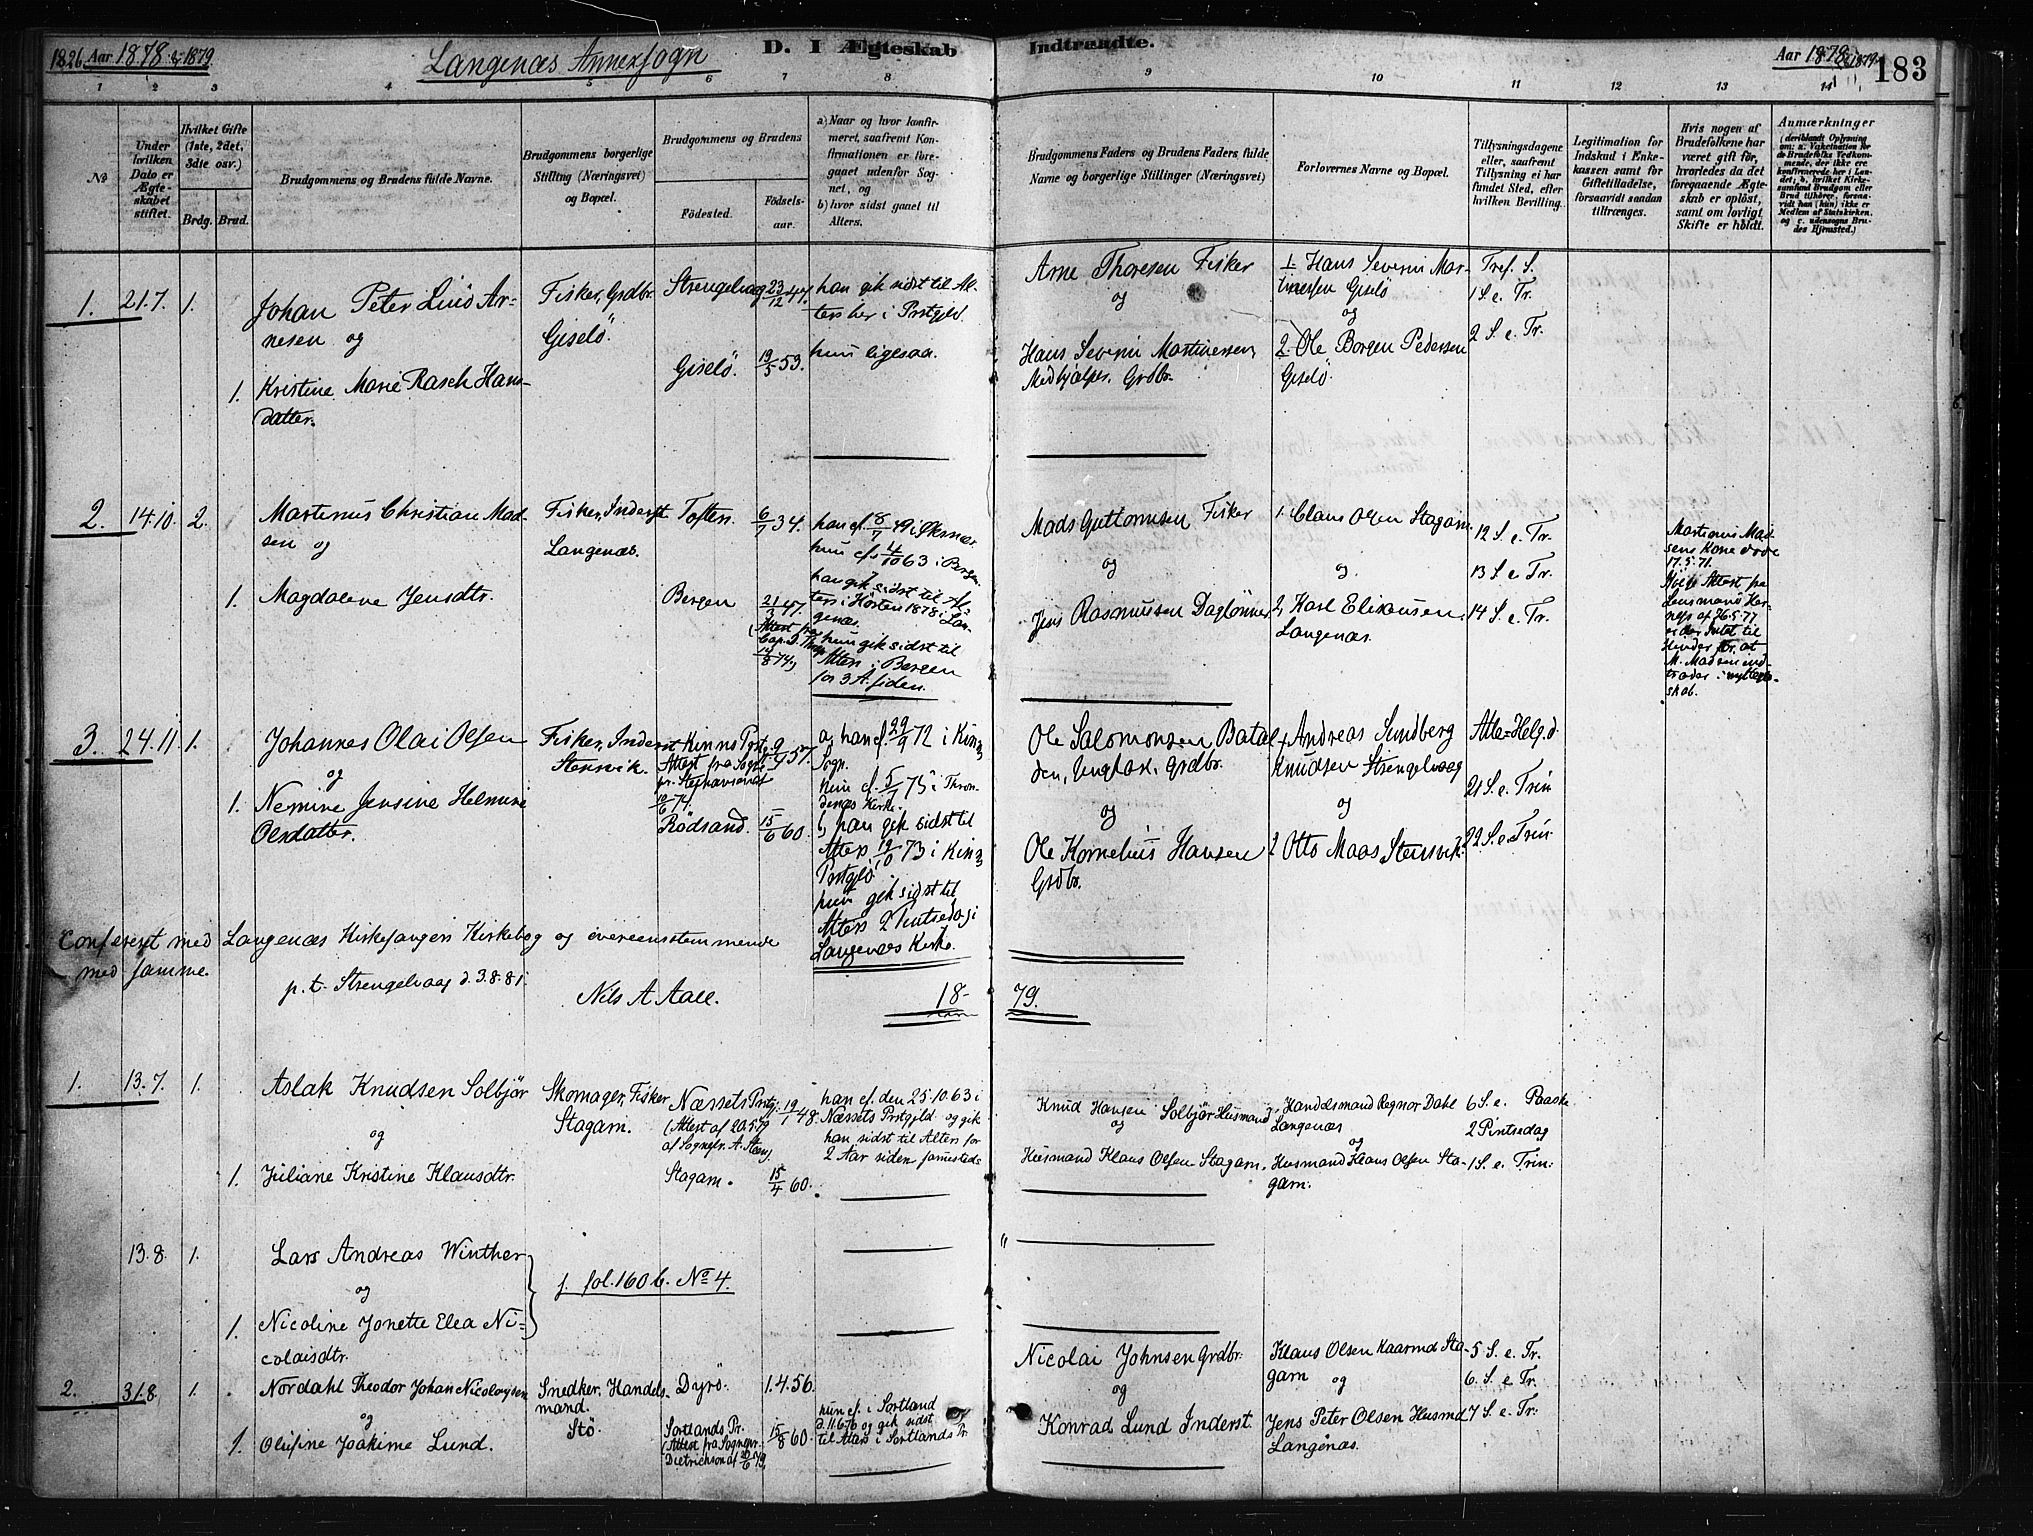 1826 Aar 1878 & 1879
Langenæs Annexsogn
D. I Ægteskab Indtraadte.
Aar 1878 & 1879
183
1 2 3 4 5 6 7 8 9 10 11 12 13 14
No
Under hvilken Dato er Ægteskabet stiftet.
Hvilket Gifte (1ste, 2det, 3die osv.)
Brdg. Brud.
Brudgommens og Brudens fulde Navne.
Brudgommens borgerlige Stilling (Næringsvei) og Bopæl.
Brudgommens og Brudens
Fødested.
Fødselsaar.
a) Naar og hvor konfirmeret, saafremt Konfirmationen er foregaaet udenfor Sognet, og
b) hvor sidst gaaet til Alters.
Brudgommens Faders og Brudens Faders fulde Navne og borgerlige Stillinger (Næringsvei)
Forlovernes Navne og Bopæl.
Tillysningsdagene eller, saafremt Tillysning ei har fundet Sted, efter hvilken Bevilling.
Legitimation for Indskud i Enkekassen samt for Giftetilladelse, forsaavidt saadan tiltrænges.
Hvis nogen af Brudefolkene har været gift før, hvorledes da det foregaaende Ægteskab er opløst, samt om lovligt Skifte er holdt.
Anmærkninger
(deriblandt Oplysning om: a. Vakcination for de Brudefolks Vedkommende, der ikke ere konfirmerede her i Landet; b. hvilket Kirkesamfund Brudgom eller Brud tilhører, forsaavidt han (hun) ikke er Medlem af Statskirken, og c. udensogns Brudes Hjemsted.)
1. 21.7. 1.
Johan Peter Lind Arnesen og
1. Kristine Marie Rasch Hansdatter.
Fisker, Grdbr. Giselö.
Strengelvaag 23/12 47.
Giselö. 19/5 53.
han gik sidst til Alters her i Prstgjld.
hun ligesaa.
Arne Thoresen Fisker
og
Hans Severin Martinessen, Medhjælper. Grdbr.
1. Hans Severin Martinessen Giselö
og
2. Ole Borgen Pedersen Giselö.
Tref. S.
1 S. e. Tr.
2 S. e. Tr.
2. 14.10. 2.
Martinus Christian Madsen og
1. Magdalene Jensdtr.
Fisker, Inderst Langenæs.
Toften. 6/7 34.
Bergen 21/3 47.
han cf. 8/7 49 i Øksnæs.
hun cf. 4/10 63 i Bergen.
han gik sidst til Alters i Høsten 1878 i Langenæs.
hun gik sidst til Alters i Bergen for 3 A. siden.
Mads Guttormsen Fisker
og
Jens Rasmussen Daglönner
1. Claus Olsen Stagam.
og
2. Karl Eliassen Langenæs.
12 S. e. Tr.
13 S. e. Tr.
14 S. e. Tr.
Martinus Madsens Kone døde 17.5.71.
3. 24.11 1.
Johannes Olai Olsen
og
1. Nemine Jensine Helmine Olsdatter.
Fisker, Inderst Stensvik.
Kinns Prstg. 9/4 57.
Attest fra Sogne
10/6 74.
Rödsand. 15/6 60.
a, han cf. 29/9 72 i Kinn Sogn.
hun cf. 5/7 75 i Throndenæs Kirke.
b, han gik sidst til Alters 19/10 73 i Kinn Prstgjld.
hun gik sidst til Alters 2 Pintsedag i Langenæs Kirke.
Ole Salomonsen Bataldden, Ungkar, Grdbr.
og
Ole Kornelius Hansen Grdbr.
1 Andreas Sundberg Knudsen Strengelvaag
og
2 Otto Maas Stensvik.
Alle Helg. d.
21 S. e. Trin
22 S. e. Trin.
Confereret med Langenæs Kirkesangers Kirkebog og overeensstemmende
med samme.
p.t. Strengelvaag d. 3.8.81.
Nils A Aall.
18-79.
1. 13.7. 1.
Aslak Knudsen Solbjör
og
1. Juliane Kristine Klausdtr.
Skomager, Fisker Stagam.
Næssets Prstg. 19/1 48.
(Attest af 20.5.79 af Sognepr. A. Steen)
Stagam. 15/4 60.
han cf. den 25.10.63 i Næssets Prstgjld og gik han sidst til Alters for 2 Aar siden sammesteds
Knud Hansen Solbjör Husmand
og
Husmand Klaus Olsen Stagam.
Handelsmand Regnor Dahl Langenæs
og
Husmand Klaus Olsen Stagam.
6 S. e. Paaske
2 Pintsedag
1 S. e. Trin.
13.8. 1.
Lars Andreas Winther
og
1. Nicoline Jonette Elea Nicolaisdtr.
f. fol. 160 b. No 4.
2. 31.8. 1.
Nordahl Theodor Johan Nicolaysen
og
1. Olufine Joakime Lund.
Snedker, Handelsmand.
Stö.
Dyrö. 1.4.56.
Sortlands Pr. 15/8 60.
(Attest fra Sognepr. Dietrichson af 20/6 79)
hun cf. i Sortland d. 11.6.76 og gik sidst til Alters i Sortlands Pr
Nicolai Johnsen Grdbr.
og
Konrad Lund Inderst.
Klaus Olsen Kaarmd Stagam og
Jens Peter Olsen Husmd Langenæs.
5 S. e. Tr.
6 S. e. Tr.
7 S. e. Tr.